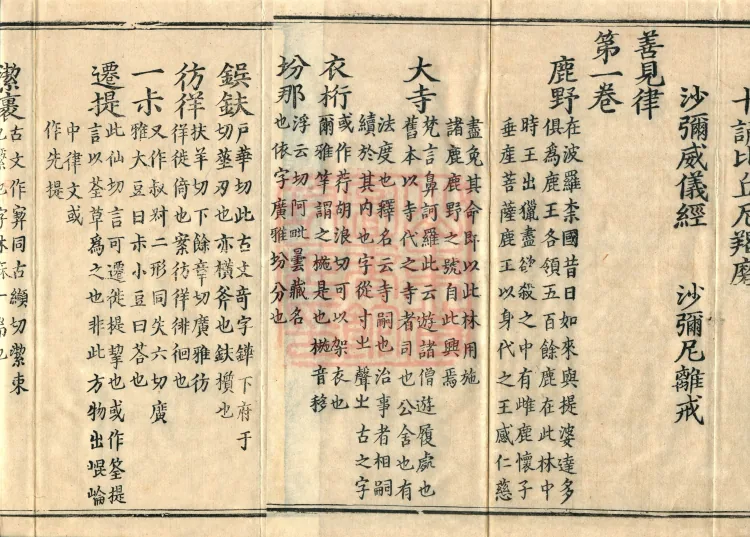 十誦比丘尼羯磨
沙彌威儀經 沙彌尼離戒
善見律
第一卷
鹿野
在波羅柰國昔日如來與提婆達多
俱為鹿王各領五百餘鹿在此林中
時王出獵盡欲殺之中有雌鹿懷子
垂產菩薩鹿王以身代之王感仁慈
盡免其命即以此林用施
諸鹿鹿野之號自此興焉
大寺
梵言鼻訶羅此云遊諸僧遊履處也
舊本以寺代之寺者司也公舍也有
法度也釋名云寺嗣也治事者相嗣
續於其內也字從寸㞢聲㞢古之字
衣桁
或作荇胡浪切可以架衣也
爾雅竿謂之椸是也椸音移
坋那
浮云切阿毗曇藏名
也依字廣雅坋分也
鋘鈇
戶華切此古文奇字鏵下府于
切莝刃也亦橫斧也鈇櫍也
彷徉
扶羊切下餘章切廣雅彷
徉徙倚也案彷徉徘徊也
一尗
又作叔二形同失六切廣
雅大豆曰尗小豆曰荅也
遷提
此仙切言可遷徙提挈也或作筌提
言以荃草為之也非此方物出崐崘
中律文或
作先提
潔裹
古文作同古纈切潔束